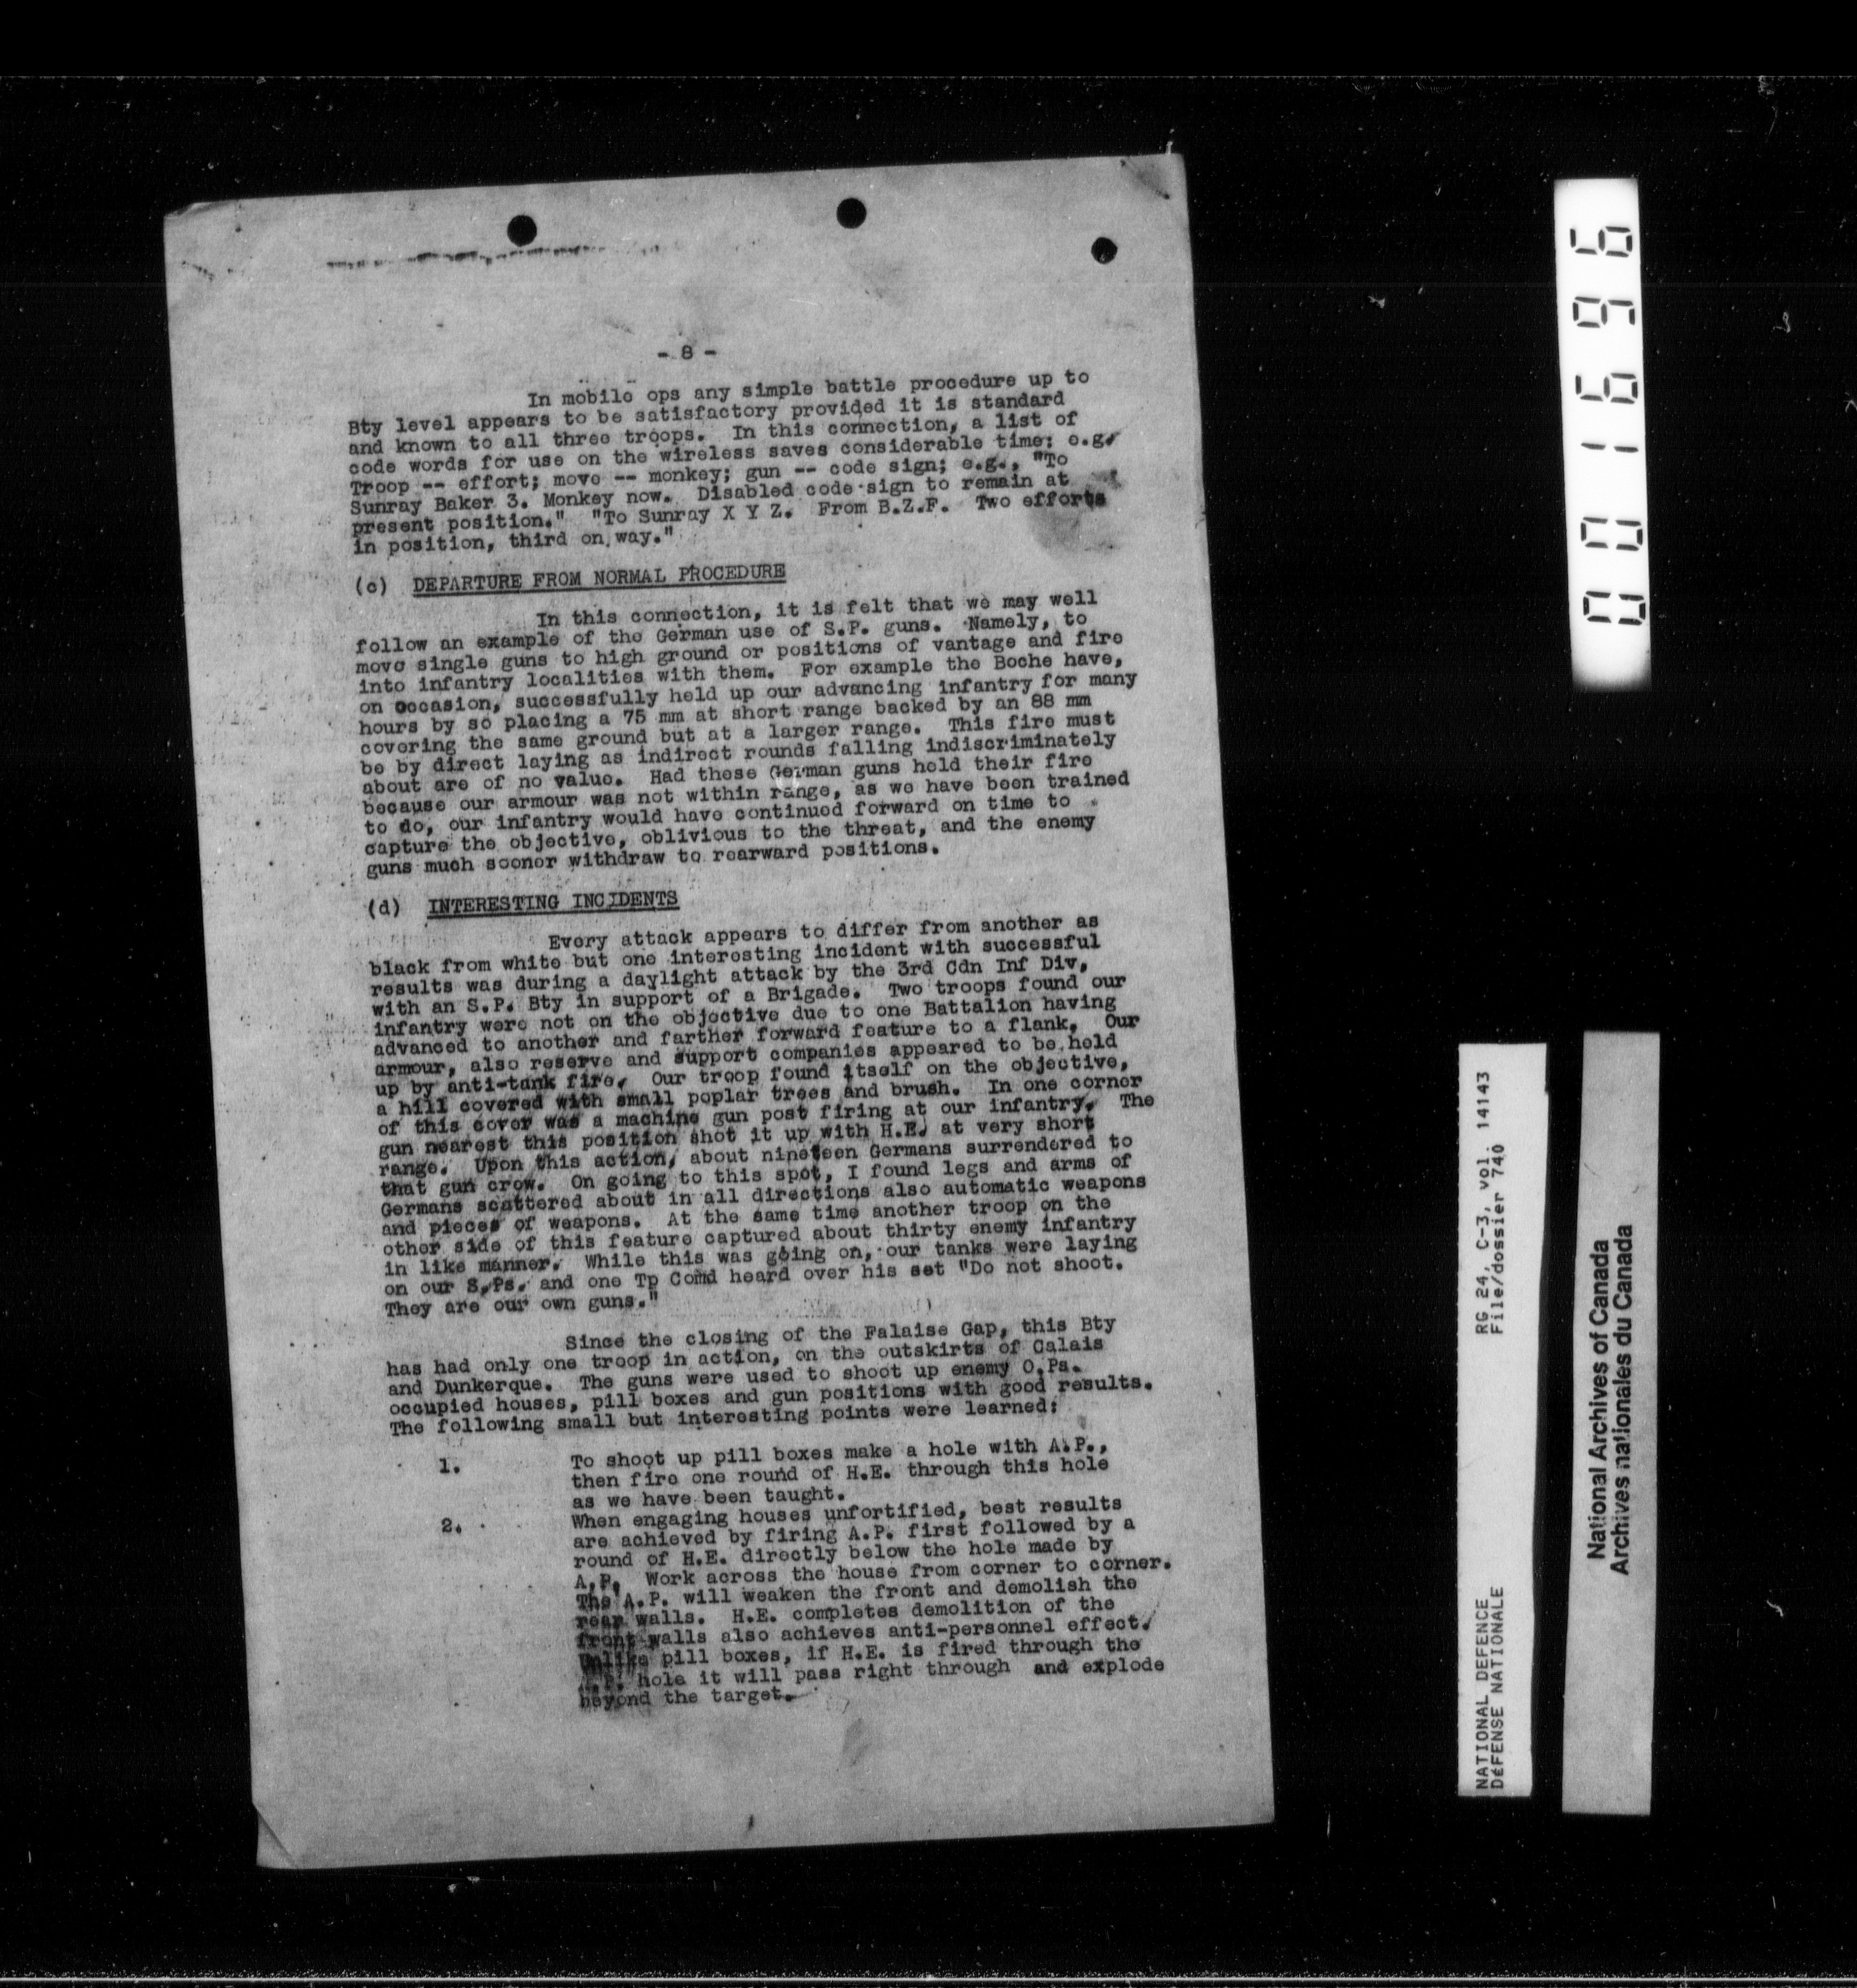 - 8 -
In mobile ops any simple battle procedure up to
Bty level appears to be satisfactory provided it is standard
and known to all three troops.  In this connection, a list of
code words for use on the wireless saves considerable time; e.g.
Troop -- effort; move -- monkey; gun -- code sign; e.g., "To
Sunray Baker 3. Monkey now.  Disabled code sign to remain at
present position."  "To Sunray X Y Z.  From B.Z.F.  Two efforts
in position, third on way."
(c) DEPARTURE FROM NORMAL PROCEDURE
In this connection, it is felt that we may well
follow an example of the German use of S.P. guns.  Namely, to
move single guns to high ground or positions of vantage and fire
into infantry localities with them.  For example the Boche have,
on occasion, successfully held up our advancing infantry for many
hours by so placing a 75 mm at short range backed by an 88 mm
covering the same ground but at a larger range.  This fire must
be by direct laying as indirect rounds falling indiscriminately
about are of no value.  Had these German guns held their fire
because our armour was not within range, as we have been trained
to do, our infantry would have continued forward on time to
capture the objective, oblivious to the threat, and the enemy
guns much sooner withdraw to rearward positions.
(d) INTERESTING INCIDENTS
Every attack appears to differ from another as
black from white but one interesting incident with successful
results was during a daylight attack by the 3rd Cdn Inf Div,
with an S.P. Bty in support of a Brigade.  Two troops found our
infantry were not on the objective due to one Battalion having
advanced to another and farther forward feature to a flank.  Our
armour, also reserve and support companies appeared to be held
up by anti-tank fire.  Our troop found itself on the objective,
a hill covered with small poplar trees and brush.  In one corner
of this cover was a machine gun post firing at our infantry.  The
gun nearest this position shot it up with H.E. at very short
range.  Upon this action, about nineteen Germans surrendered to
that gun crow.  On going to this spot, I found legs and arms of
Germans scattered about in all directions also automatic weapons
and pieces of weapons.  At the same time another troop on the
other side of this feature captured about thirty enemy infantry
in like manner.  While this was going on, our tanks were laying
on our S.Ps. and one Tp Comd heard over his set "Do not shoot.
They are our own guns."
Since the closing of the Falaise Gap, this Bty
has had only one troop in action, on the outskirts of Calais
and Dunkerque.  The guns were used to shoot up enemy O.Ps.
occupied houses, pill boxes and gun positions with good results.
The following small but interesting points were learned:
1. To shoot up pill boxes make a hole with A.P.,
then fire one round of H.E. through this hole
as we have been taught.
2. When engaging houses unfortified, best results
are achieved by firing A.P. first followed by a
round of H.E. directly below the hole made by
A.P.  Work across the house from corner to corner.
The A.P. will weaken the front and demolish the
rear walls.  H.E. completes demolition of the
front walls also achieves anti-personnel effect.
Unlike pill boxes, if H.E. is fired through the
A.P. hole it will pass right through and explode
beyond the target.
001696
RG 24, C-3, vol. 14143
File/dossier 740
NATIONAL DEFENCE
DÉFENSE NATIONALE
National Archives of Canada
Archives nationales du Canada